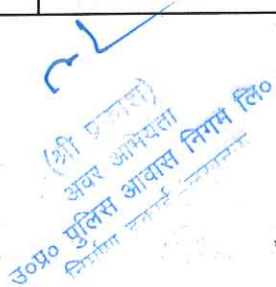 (श्री प्रकाश)
अवर अभियंता
उ०प्र० पुलिस आवास निगम लि०
निर्माण इकाई लखनऊ